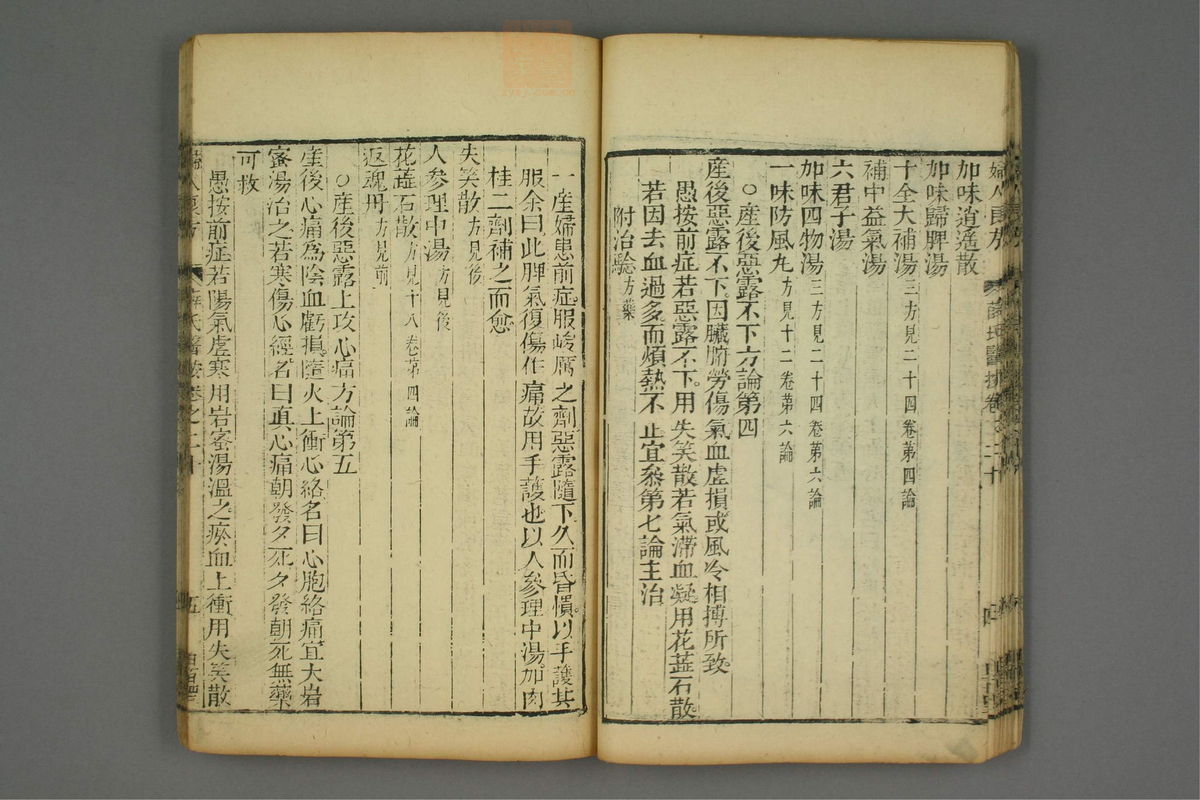 加味逍遙散
加味歸脾湯
十全大補湯三方見二十四卷第四論
補中益氣湯
六君子湯
加味四物湯三方見二十四卷第六論
一味防風丸方見十二卷第六論
○產後惡露不下方論第四
產後惡露不下因臟腑勞傷氣血虛損或風冷相搏所致
愚按前症若惡露不下用失笑散若氣滯血凝用花蕋石散
若因去血過多而煩熱不止宜叅第七論主治
附治驗方藥
一產婦患前症服峻厲之劑惡露隨下久而昏憒以手護其
服余曰此脾氣復傷作痛故用手護也以人參理中湯加肉
桂二劑補之而愈
失笑散方見後
人參理中湯方見後
花蕋石散方見十八卷第四論
返魂丹方見前
○產後惡露上攻心痛方論第五
產後心痛為陰血虧損隨火上衝心絡名曰心胞絡痛宜大岩
蜜湯治之若寒傷心經名曰真心痛朝發夕死夕發朝死無藥
可救
愚按前症若陽氣虛寒用岩蜜湯溫之瘀血上衝用失笑散